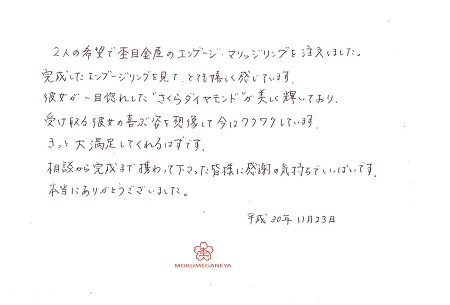 2人の希望で杢目金屋のエンゲージ・マリッジリングを注文しました。
完成したエンゲージリングを見て、とても嬉しく感じています。
彼女が一目惚れした"さくらダイヤモンド"が美しく輝いており、
受け取る彼女の喜ぶ姿を想像して今はワクワクしています。
きっと大満足してくれるはずです。
相談から完成まで携わって下さった皆様に感謝の気持ちでいっぱいです。
本当にありがとうございました。
平成30年11月23日
MOKUMEGANEYA